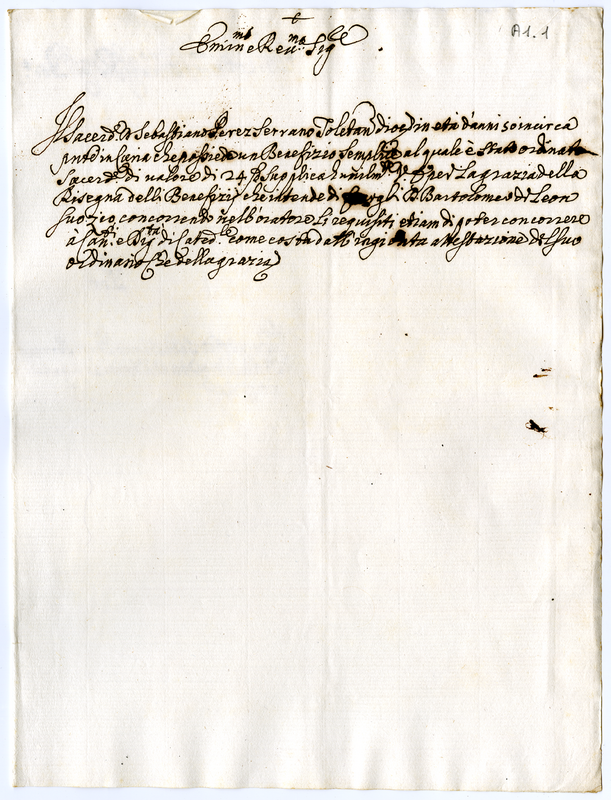 A1.1
Emin.mo e Rev.mo Sig.re
Il Sacerd.e D. Sebastiano Perez Serrano Toletan. dioc. in età d'anni 50 in circa
pnte in Curia che possiede un Benefizio Semplice al quale è stato ordinato
Sacerd.e di valore di 24 supplica humilm.te V. E. per la grazia della
Risegna delli Benefizi che intende di fargli D. Bartolomeo de Leon
suo zio concorrendo nell'oratore li requisiti etiam di poter concorrere
à Can.ti e Dig.tà di Cated.le come costa dall'ingionta attestazione del suo
ordinario che della grazia